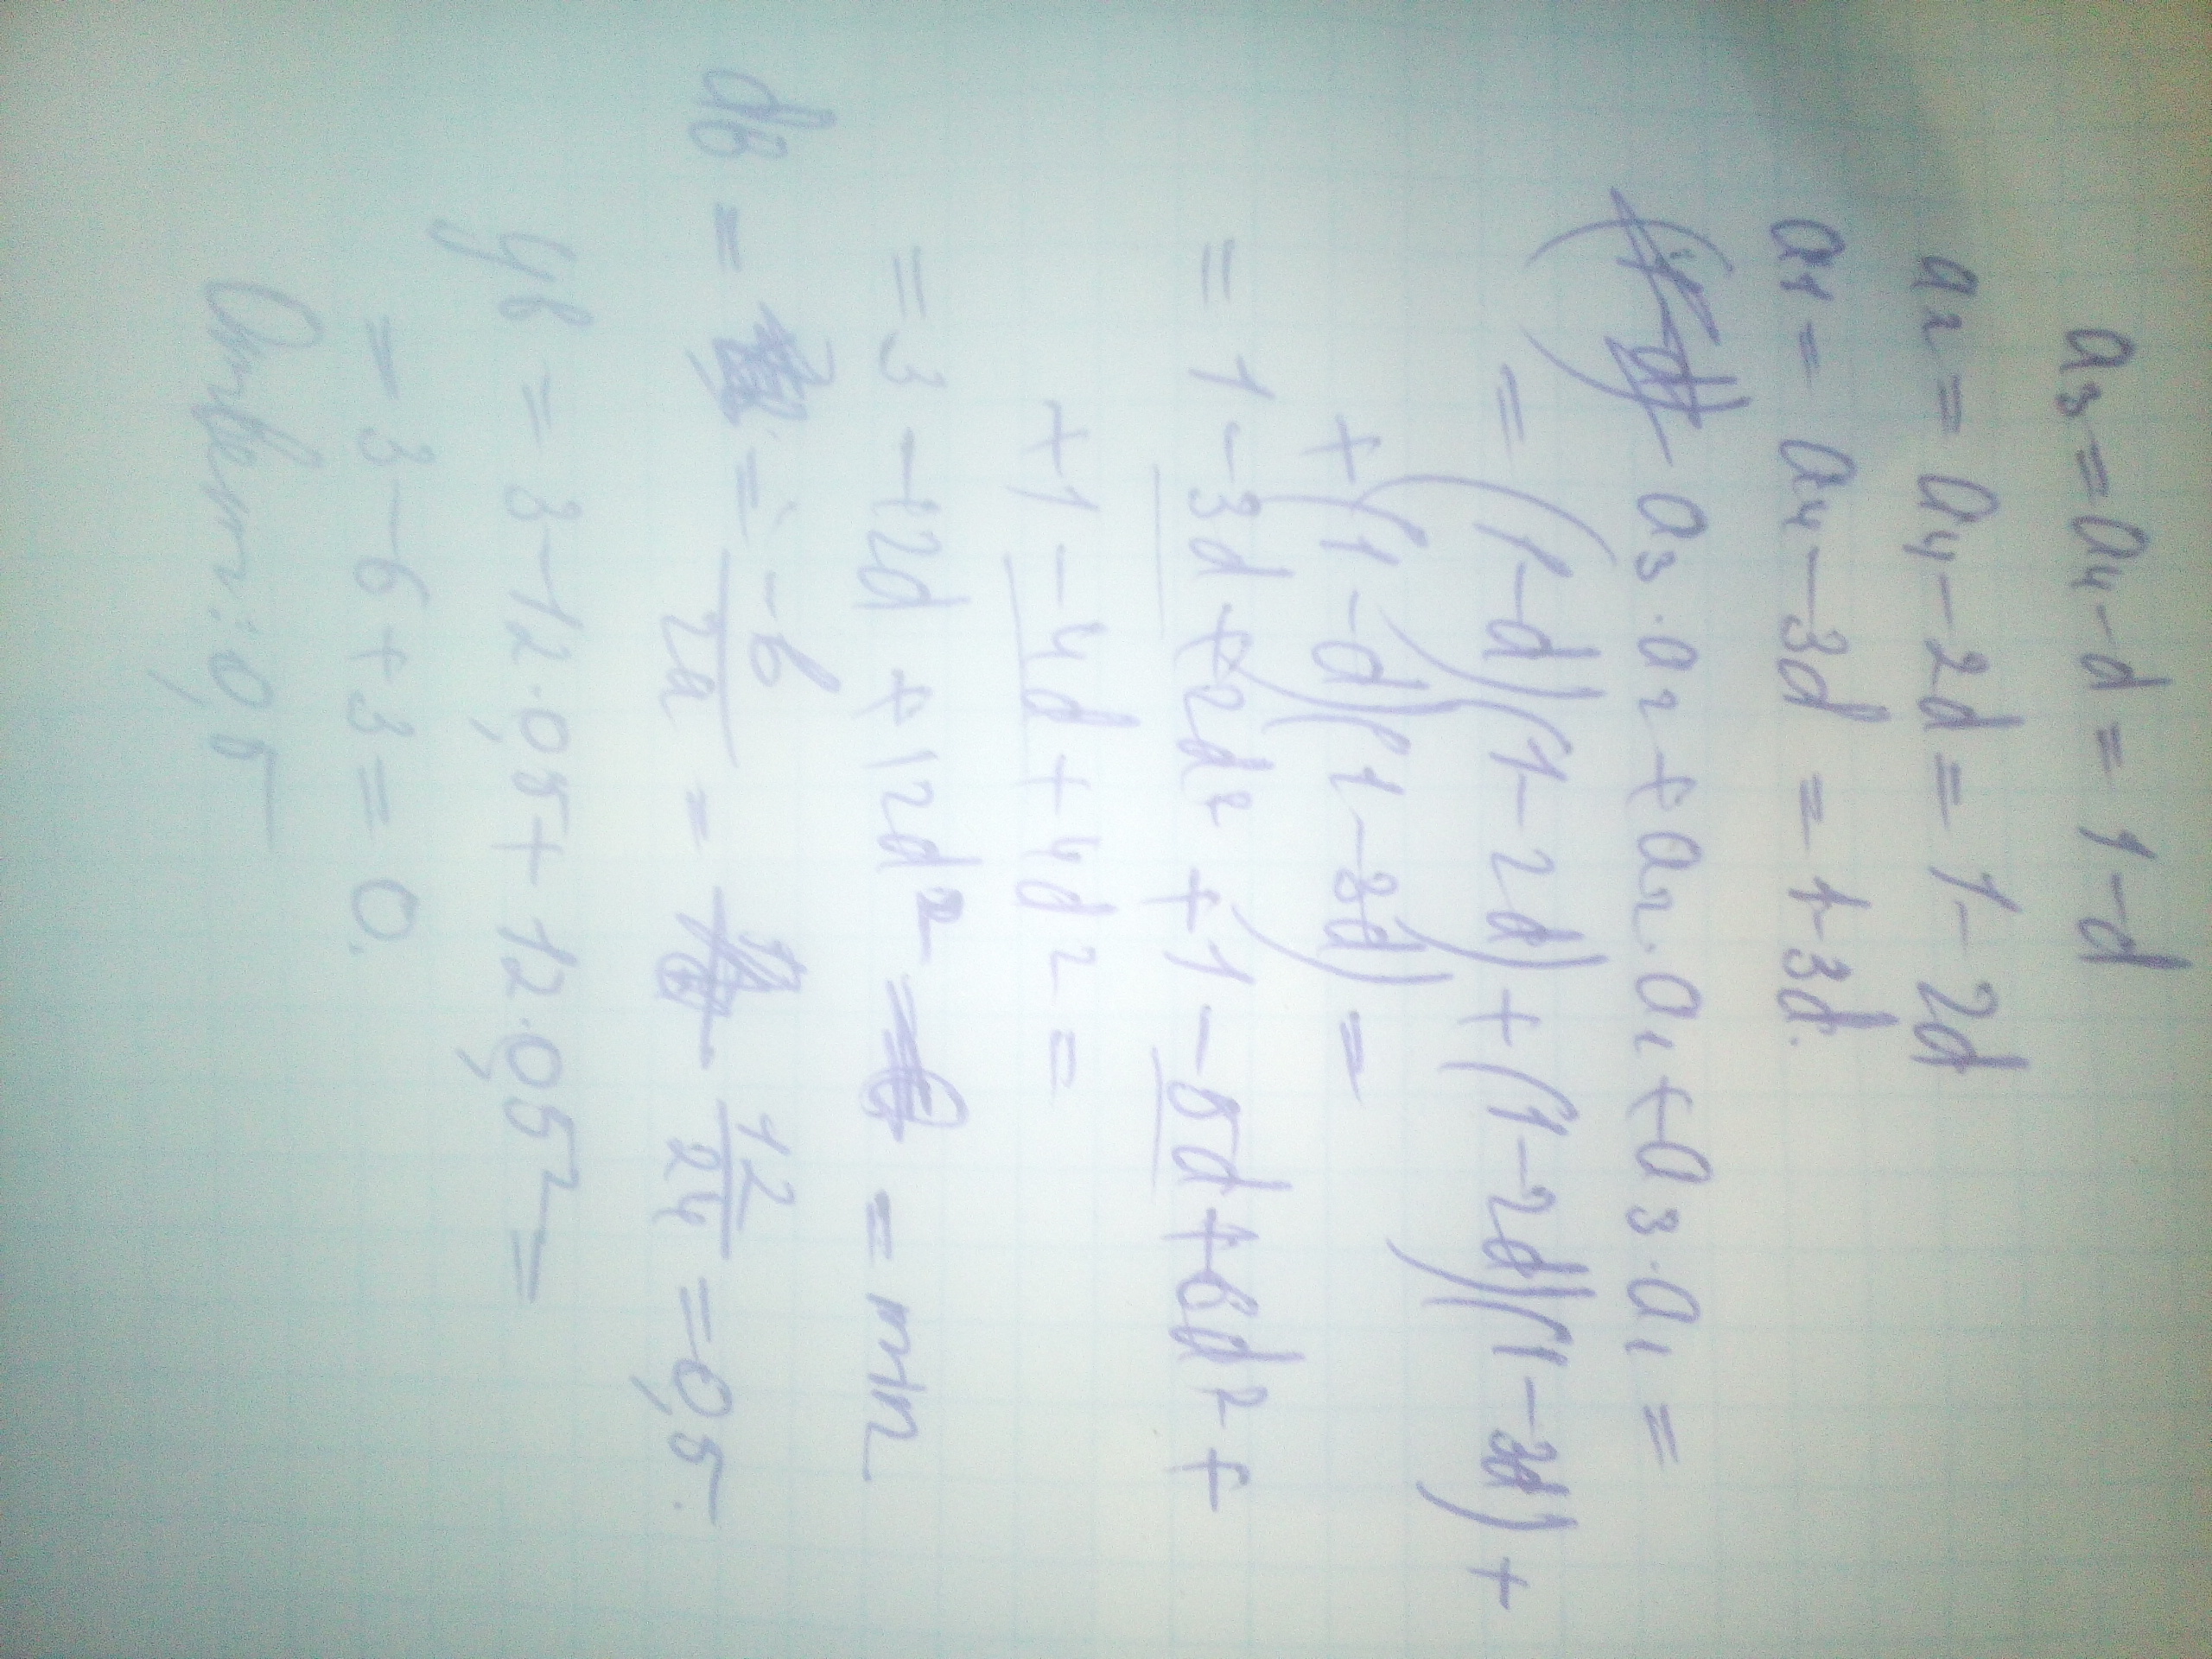 a₃ = a₄ - d = 1 - d
a₂ = a₄ - 2d = 1 - 2d
a₁ = a₄ - 3d = 1 - 3d.
a₃ · a₂ + a₂ · a₁ + a₃ · a₁ =
= (1-d)(1-2d) + (1-2d)(1-3d) +
+ (1-d)(1-3d) =
= 1 - 3d + 2d² + 1 - 5d + 6d² +
+ 1 - 4d + 4d² =
= 3 - 12d + 12d² = min
dв = = -b/2a = 12/24 = 0,5.
yв = 3 - 12·0,5 + 12·0,5² =
= 3 - 6 + 3 = 0.
Ответ: 0,5